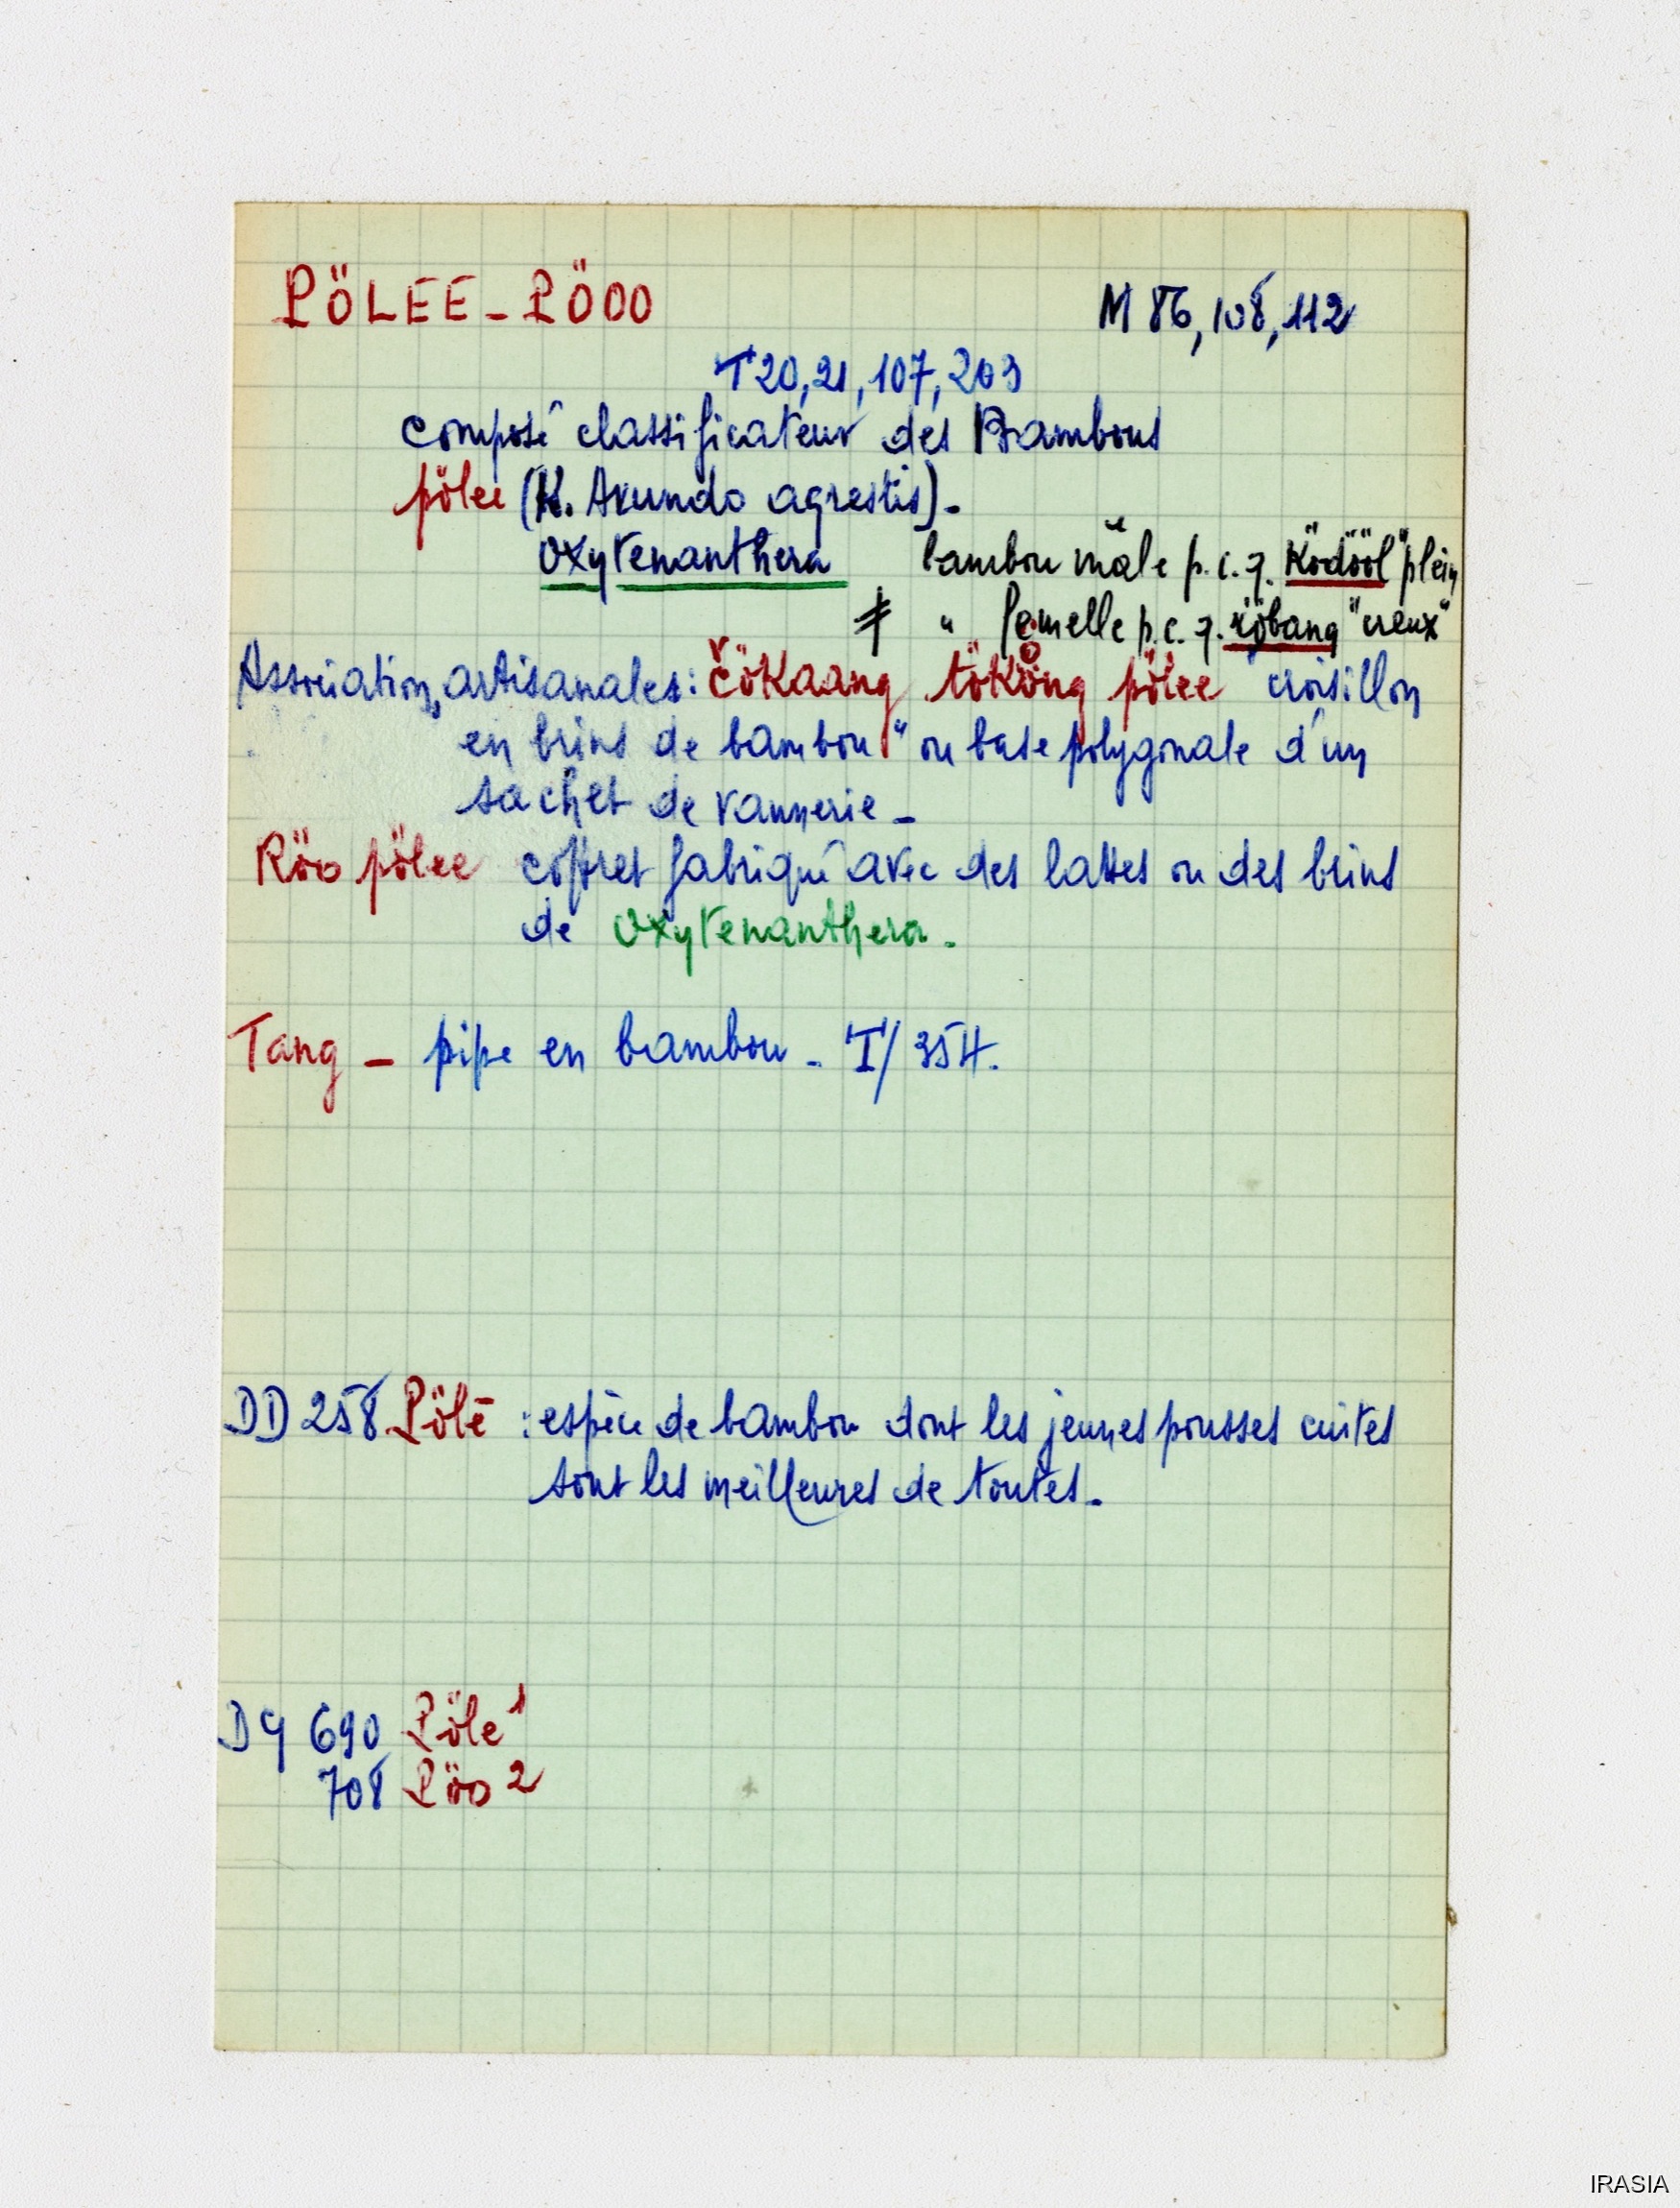 PÖLEE - PÖOO
M 86, 108, 112
T 20, 21, 107, 203
composé classificateur des Bambous
pölee (K. Arundo agrestis).
Oxytenanthera bambou mâle p. c. q. Ködööl "plein"
≠ " femelle p. c. q. röbang "creux"
Associations artisanales : čökaang tököng pölee "croisillon
en brins de bambou" ou base polygonale d'un
sachet de vannerie -
Röo pölee coffret fabriqué avec des lattes ou des brins
de Oxytenanthera.
Tang - pipe en bambou - T/354.
DD 258 Pölē : espèce de bambou dont les jeunes pousses cuites
sont les meilleures de toutes.
DG 690 Pöle 1
708 Pöo 2
IRASIA